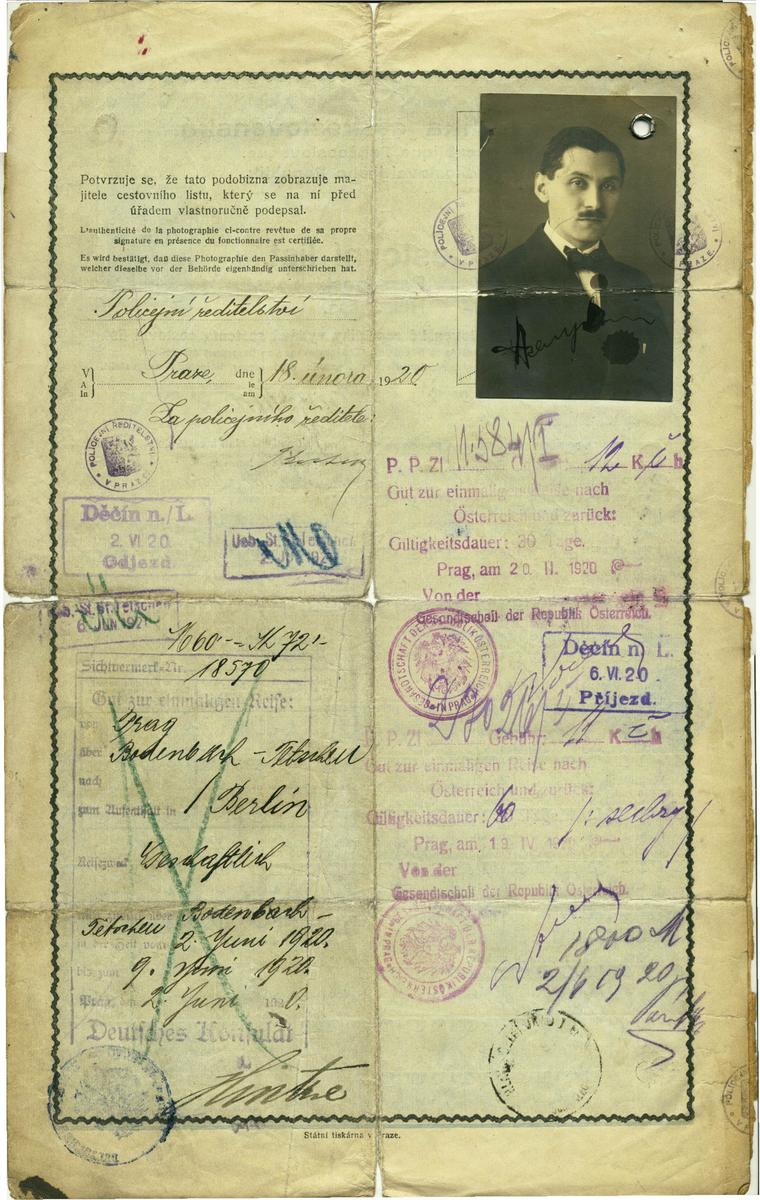 Potvrzuje se, že tato podobizna zobrazuje ma-
jitele cestovního listu, který se na ní před
úřadem vlastnoručně podepsal.
L'authenticité de la photographie ci-contre revêtue de sa propre
signature en présence du fonctionnaire est certifiée.
Es wird bestätigt, daß diese Photographie den Passinhaber darstellt,
welcher dieselbe vor der Behörde eigenhändig unterschrieben hat.
Policejní ředitelství
V
A
In
Praze, dne
le
am
18. února 1920
Za policejního ředitele:
POLICEJNÍ ŘEDITELSTVÍ
V PRAZE
Děčín n./L.
2. VI. 20.
Odjezd.
Tetschen
K 60 - = K 72 -
Sichtvermerk-Nr.
18570
Gut zur einmaligen Reise:
von Prag
über Bodenbach - Tetschen
nach
zum Aufenthalt in Berlin
Reisezweck Geschäftlich
Bodenbach -
Tetschen
in der Zeit vom 2. Juni 1920.
bis zum 9. Juni 1920.
Prag, den 2. Juni 1920.
Deutsches Konsulat
POLICEJNÍ
V PRAZE
P. P. Zl. 12 K č h
Gut zur einmaligen Reise nach
Österreich und zurück:
Giltigkeitsdauer: 30 Tage.
Prag, am 20 II. 1920
Von der
Gesandtschaft der Republik Österreich.
GESANDTSCHAFT DER REPUBLIK ÖSTERREICH
IN PRAG
Děčín n. L.
6. VI. 20
Příjezd.
P. P. Zl. Gebühr: K č h
Gut zur einmaligen Reise nach
Österreich und zurück:
Giltigkeitsdauer: 60 Tage.
Prag, am 19 IV 1920
Von der
Gesandtschaft der Republik Österreich.
1800 M
2/6 19 20
Státní tiskárna v Praze.